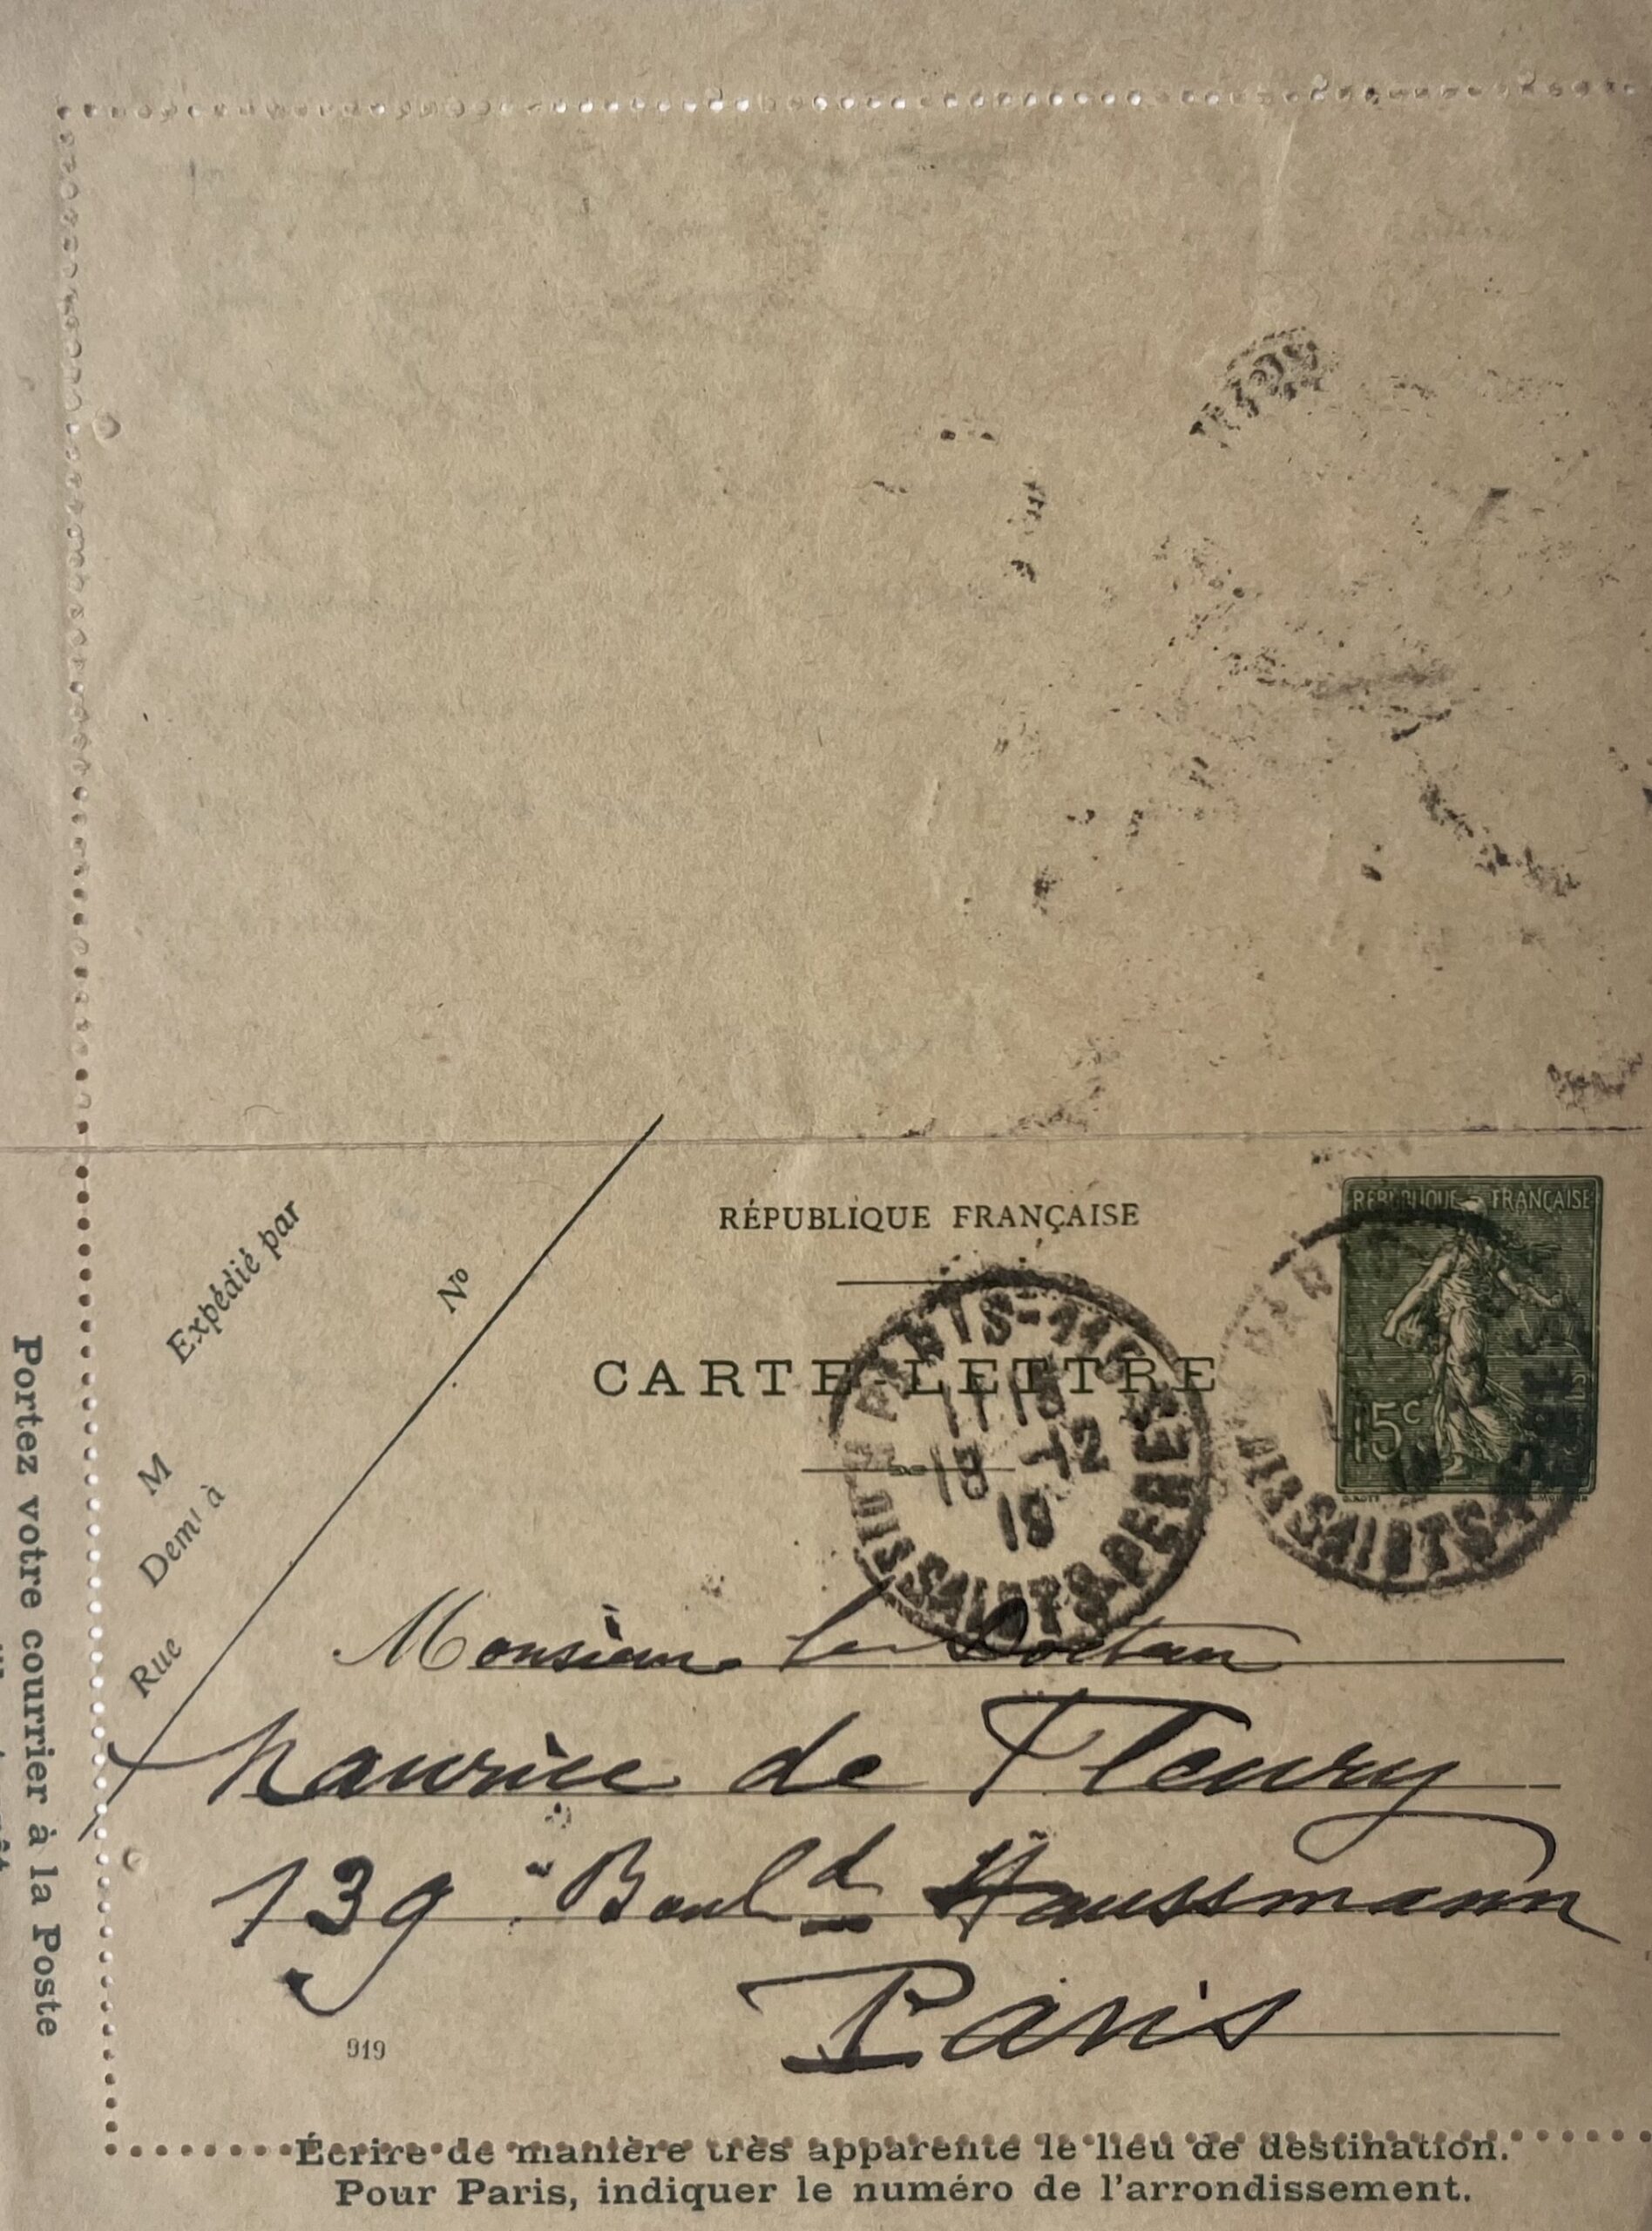 RÉPUBLIQUE FRANÇAISE
CARTE-LETTRE
RÉPUBLIQUE FRANÇAISE
15c
PARIS-110
18 -12
19
SAINTS PERES
SAINTS
Expédié par
No
M
Demt à
Rue
Monsieur le Docteur
Maurice de Fleury
139 Bould Haussmann
Paris
919
Écrire de manière très apparente le lieu de destination.
Pour Paris, indiquer le numéro de l'arrondissement.
Portez votre courrier à la Poste